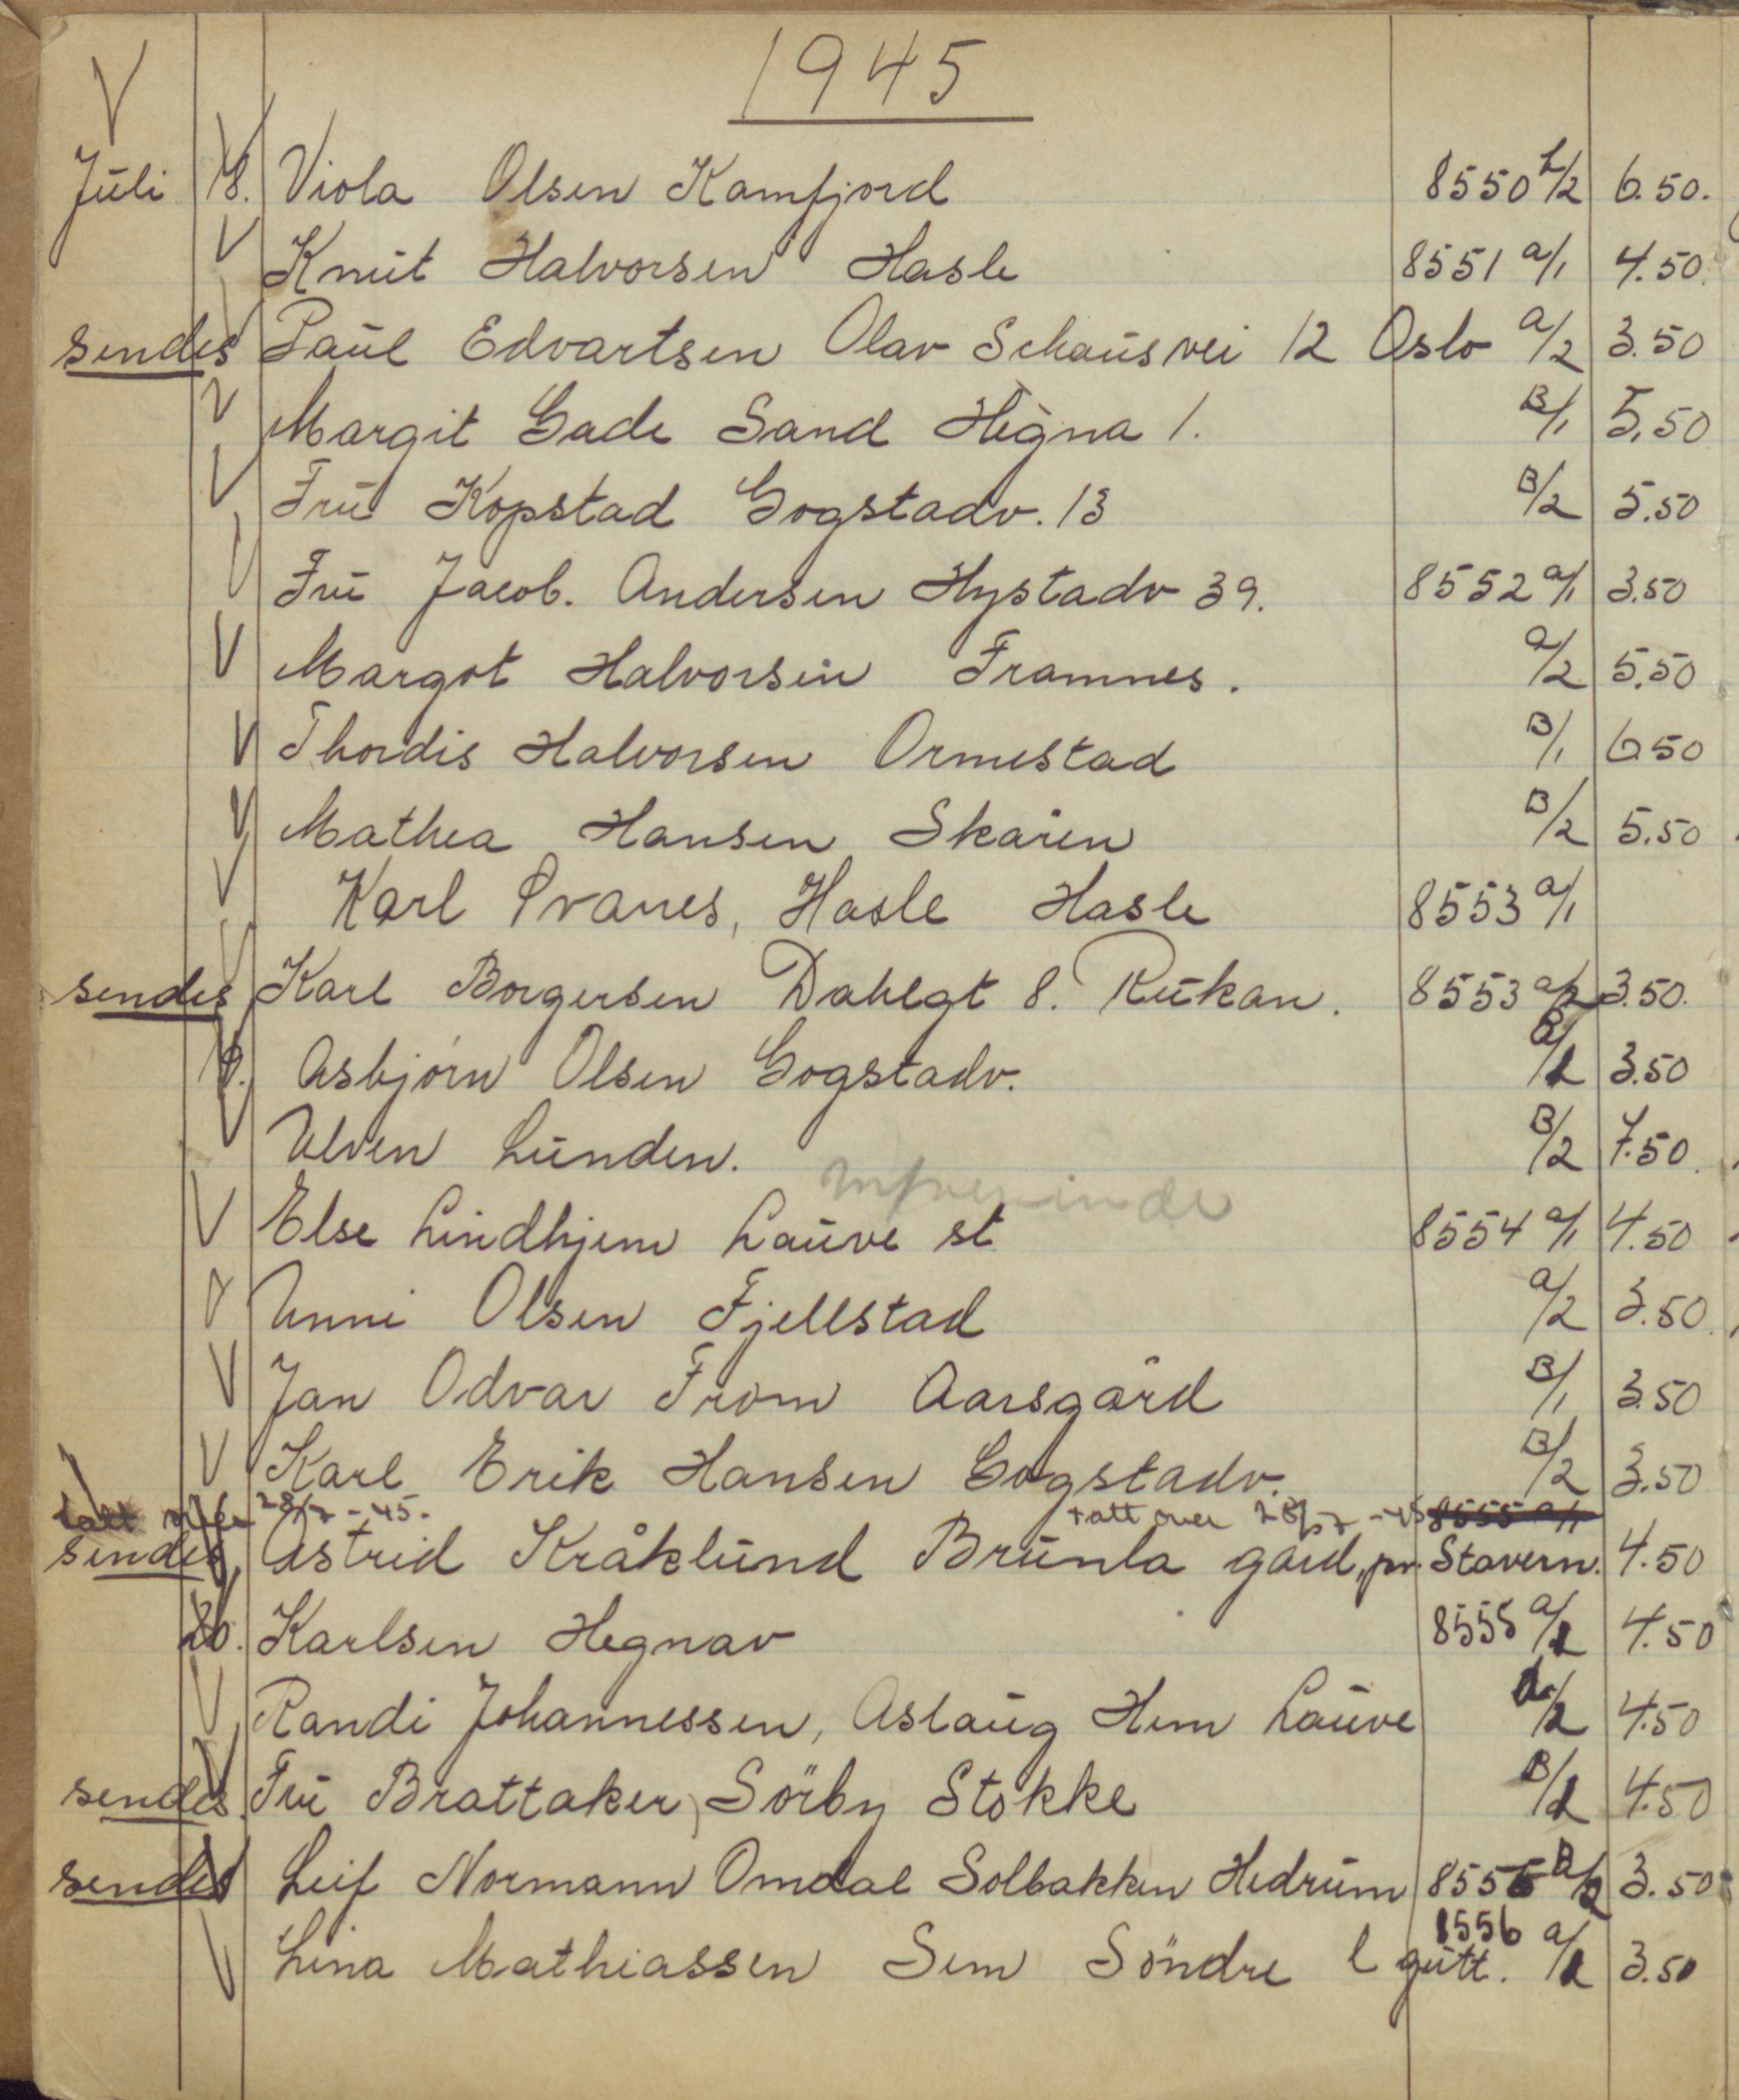 1945
Juli 18. Viola Olsen Kamfjord 8550 b/2 6.50.
Knut Halvorsen Hasle 8551 a/1 4.50.
sendes Paul Edvartsen Olav Schousvei 12 Oslo a/2 3.50
Margit Gade Sand Hegna 1. B/1 5.50
Fru Kopstad Gogstadv. 13 B/2 5.50
Fru Jacob. Andersen Hystadv 39. 8552 a/1 3.50
Margot Halvorsen Framnes. a/2 5.50
Thordis Halvorsen Ormestad B/1 6.50
Mathea Hansen Skåren B/2 5.50
Karl Svanes, Hasle Hasle 8553 a/1
sendes Karl Borgersen Dahlgt 8. Rukan. 8553 a/2 3.50.
Asbjörn Olsen Gogstadv. B/1 3.50
Ulven Lunden. B/2 7.50.
Else Lindhjem Lauve st 8554 a/1 4.50
Unni Olsen Fjellstad a/2 3.50.
Jan Odvar From Aarsgård B/1 3.50
Karl Erik Hansen Gogstadv. B/2 3.50
tatt over 28/7 -45. tatt over 28/7 -45 8555 a/1
sendes Astrid Kråklund Brunla gård, pr. Stavern. 4.50
20. Karlsen Hegnav 8555 a/1 4.50
Randi Johannessen, Aslaug Hem Lauve a/2 4.50
sendes. Fru Brattaker, Sörby Stokke B/1 4.50
sendes Leif Normann Omdal Solbakken Hedrum 8555 B/2 3.50
8556
Lina Mathiassen Sem Söndre l gutt. a/1 3.50